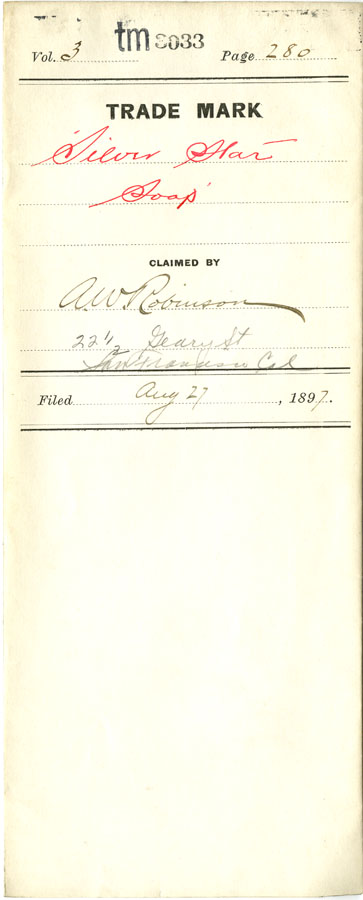 tm 3033
Vol. 3 Page 280
TRADE MARK
"Silver Star
Soap"
CLAIMED BY
A.W. Robinson
22 1/2 Geary St
San Francisco Cal
Filed Aug 27, 1897.